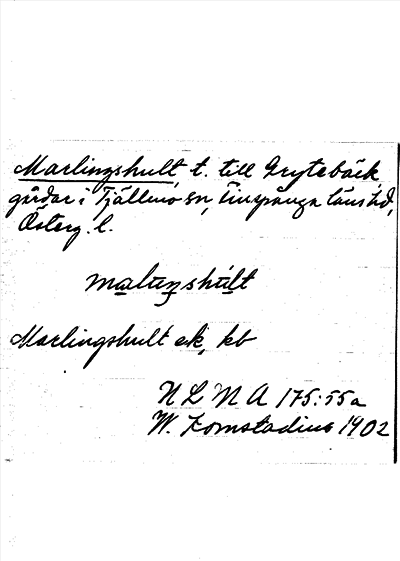 Marlingshult t. till Grytebäck,
gårdar i Tjällmo sn, Finspånga läns hd,
Österg. l.
maluŋshu̇lt
Marlingshult ek, kb
N L M A 175:55a
W. Komstadius 1902